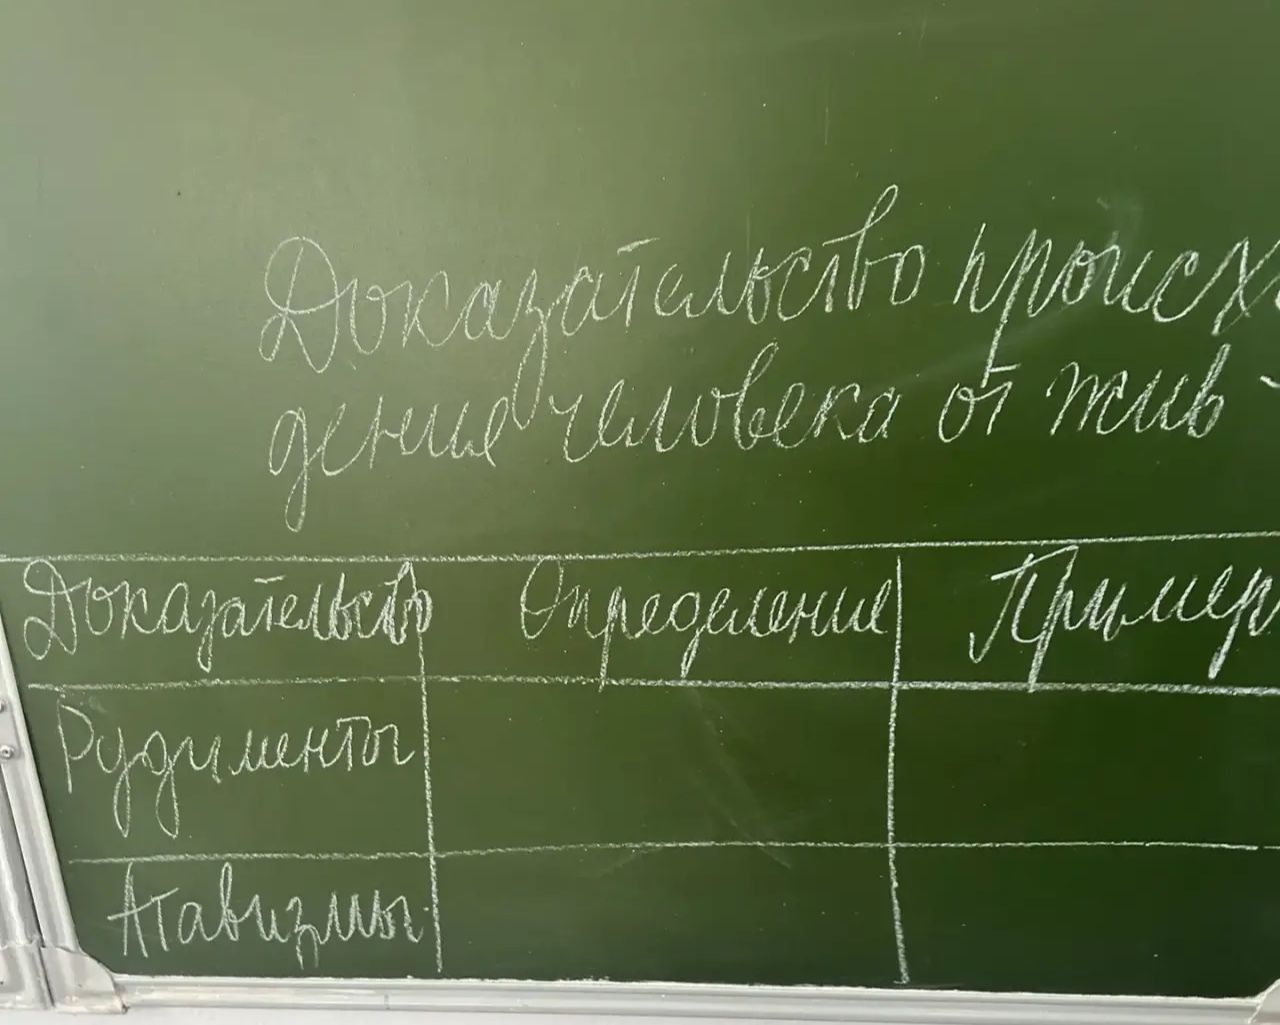 Доказательство происх
дение человека от жив -
Доказательство Определение Пример
Рудименты
Атавизмы